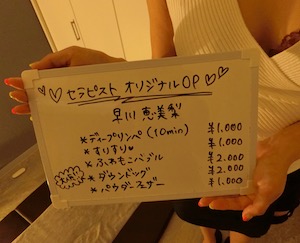 ♡♡ セラピスト オリジナルOP ♡♡
早川 恵美梨
*ディープリンパ(10min) ¥1.000
*すりすり♥ ¥1.000
*ふわもこバブル ¥2.000
*ダウンドッグ ¥2.000
*パウダー ¥1.000